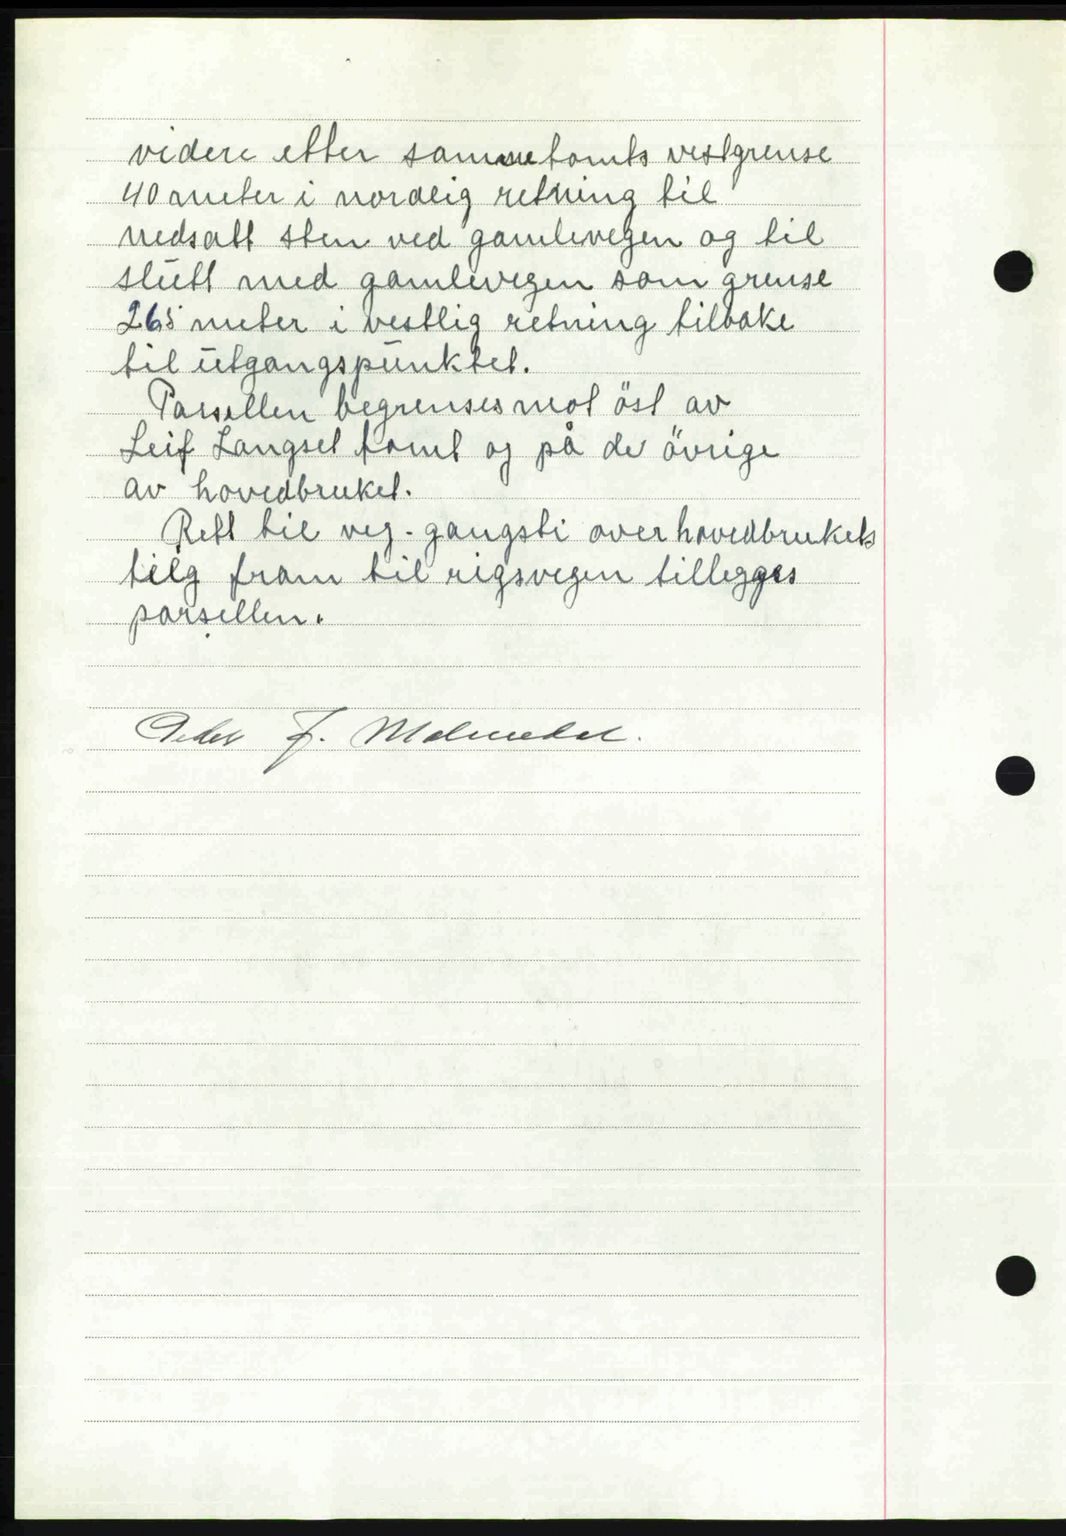 videre etter sammetomts vestgrense
40 meter i nordlig retning til
nedsatt sten ved gamlevegen og til
slutt med gamlevegen som grense
26,5 meter i vestlig retning tilbake
til utgangspunktet.
Parsellen begrenses mot öst av
Leif Langset tomt og på de övrige
av hovedbruket.
Rett til veg-gangsti over hovedbrukets
fram til rigsvegen tillegges
parsellen.
Peder J. Malmedal.